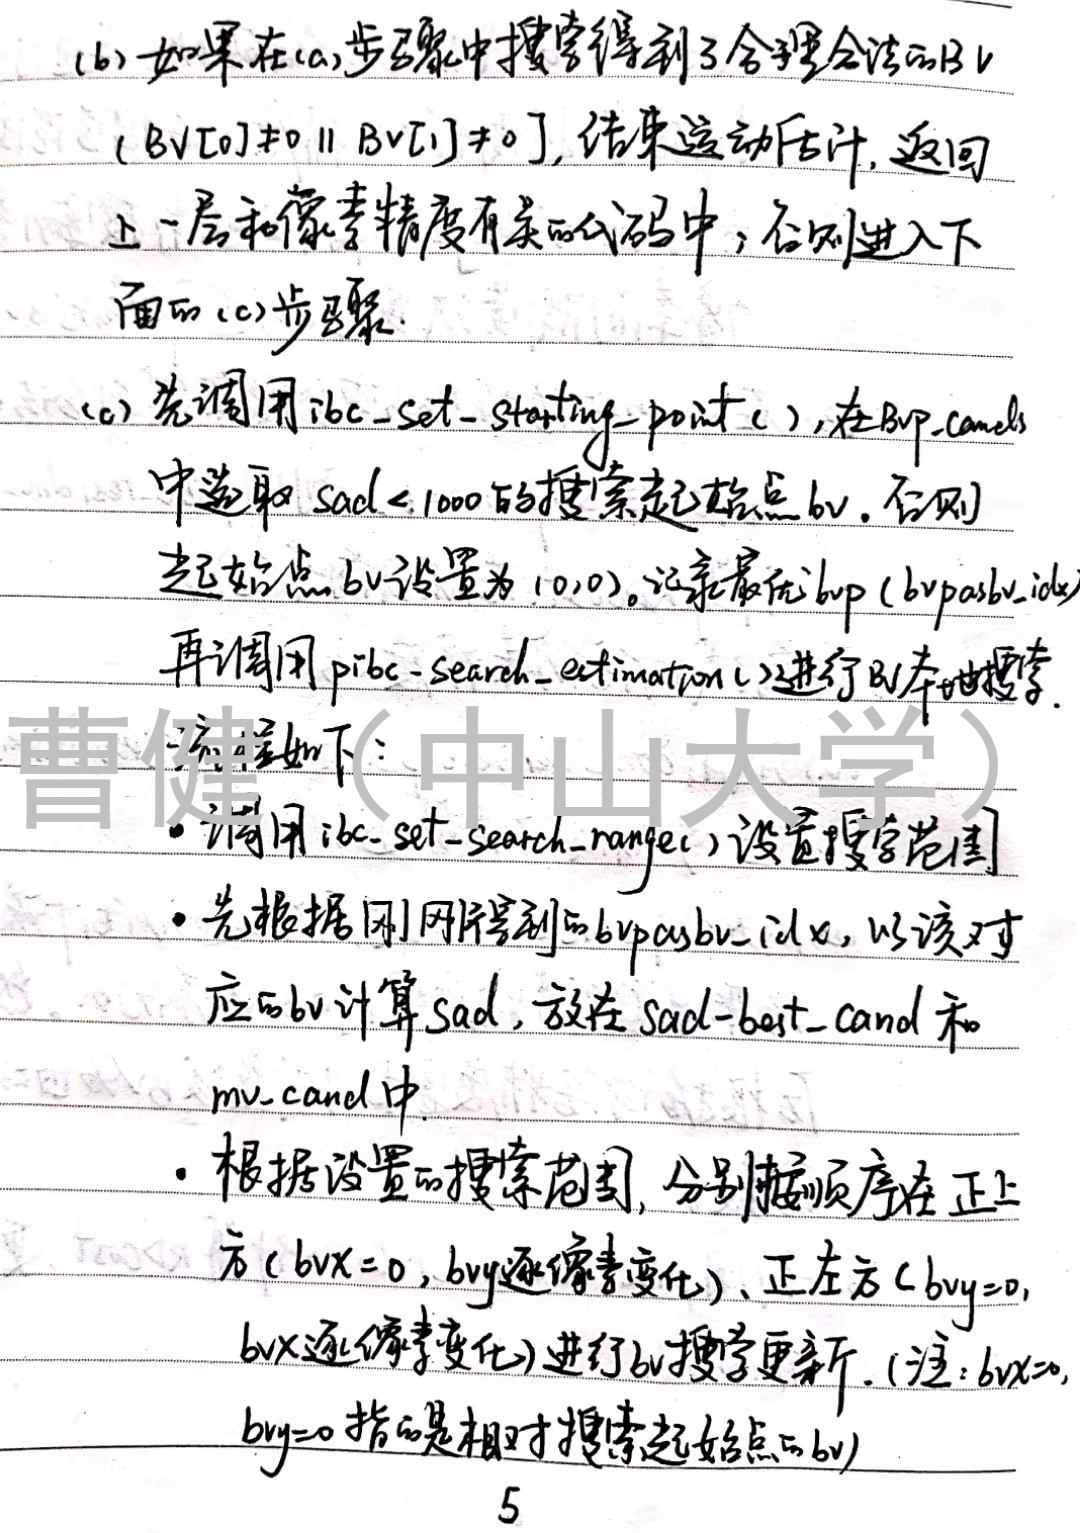 (b) 如果在(a)步骤中搜索得到了合理合法的BV
(BV[0]≠0 || BV[1]≠0],结束运动估计,返回
上一层和像素精度有关的代码中;否则进入下
面的(c)步骤.
(c) 先调用ibc_set_starting_point(),在Bvp_cands
中选取 sad<1000的搜索起始点bv。否则
起始点bv设置为(0,0)。记录最优bvp(bvpasbv_idx)
再调用pibc_search_estimation()进行BV本地搜索.
流程如下:
曹健(中山大学)
• 调用ibc_set_search_range()设置搜索范围
• 先根据刚刚得到的bvpasbv_idx,以该对
应的bv计算sad,放在sad_best_cand和
mv_cand中.
• 根据设置的搜索范围,分别按顺序在正上
方(bvx=0,bvy逐像素变化)、正左方(bvy=0,
bvx逐像素变化)进行bv搜索更新.(注:bvx=0,
bvy=0指的是相对搜索起始点的bv)
5